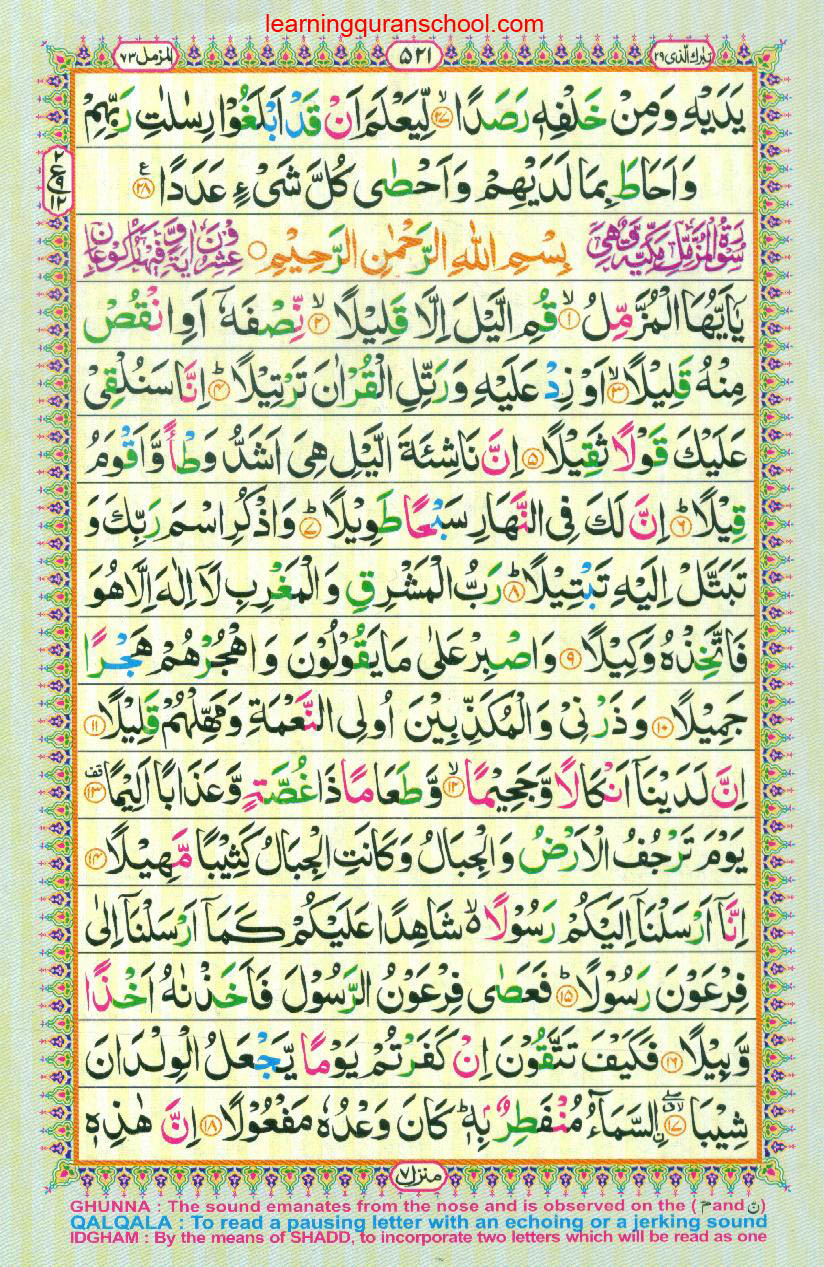 learningquranschool.com
تبٰرك الّذى ٢٩
٥٢١
المزمل ٧٣
يَدَيْهِ وَمِنْ خَلْفِهٖ رَصَدًا ۙ‏﴿۲۷﴾ لِّيَعْلَمَ اَنْ قَدْ اَبْلَغُوْا رِسٰلٰتِ رَبِّهِمْ
وَاَحَاطَ بِمَا لَدَيْهِمْ وَاَحْصٰى كُلَّ شَىْءٍ عَدَدًا ﴿۲۸﴾ ع
٢
ع
٩
١٢
سُوْرَةُ الْمُزَّمِّلِ مَكِّيَّةٌ وَّهِىَ بِسْمِ اللهِ الرَّحْمٰنِ الرَّحِيْمِ ○ عِشْرُوْنَ اٰيَةً وَّفِيْهَا رُكُوْعَانِ
يٰۤاَيُّهَا الْمُزَّمِّلُ ۙ﴿۱﴾ قُمِ الَّيْلَ اِلَّا قَلِيْلًا ۙ﴿۲﴾ نِّصْفَهٗۤ اَوِ انْقُصْ
مِنْهُ قَلِيْلًا ۙ﴿۳﴾ اَوْ زِدْ عَلَيْهِ وَرَتِّلِ الْقُرْاٰنَ تَرْتِيْلًا ؕ﴿۴﴾ اِنَّا سَنُلْقِىْ
عَلَيْكَ قَوْلًا ثَقِيْلًا ﴿۵﴾ اِنَّ نَاشِئَةَ الَّيْلِ هِىَ اَشَدُّ وَطْاً وَّاَقْوَمُ
قِيْلًا ؕ﴿۶﴾ اِنَّ لَكَ فِى النَّهَارِ سَبْحًا طَوِيْلًا ؕ﴿۷﴾ وَاذْكُرِ اسْمَ رَبِّكَ وَ
تَبَتَّلْ اِلَيْهِ تَبْتِيْلًا ؕ﴿۸﴾ رَبُّ الْمَشْرِقِ وَالْمَغْرِبِ لَاۤ اِلٰهَ اِلَّا هُوَ
فَاتَّخِذْهُ وَكِيْلًا ﴿۹﴾ وَاصْبِرْ عَلٰى مَا يَقُوْلُوْنَ وَاهْجُرْهُمْ هَجْرًا
جَمِيْلًا ﴿۱۰﴾ وَذَرْنِىْ وَالْمُكَذِّبِيْنَ اُولِى النَّعْمَةِ وَمَهِّلْهُمْ قَلِيْلًا ﴿۱۱﴾
اِنَّ لَدَيْنَاۤ اَنْكَالًا وَّجَحِيْمًا ۙ﴿۱۲﴾ وَّطَعَامًا ذَا غُصَّةٍ وَّعَذَابًا اَلِيْمًا قف﴿۱۳﴾
يَوْمَ تَرْجُفُ الْاَرْضُ وَالْجِبَالُ وَكَانَتِ الْجِبَالُ كَثِيْبًا مَّهِيْلًا ﴿۱۴﴾
اِنَّاۤ اَرْسَلْنَاۤ اِلَيْكُمْ رَسُوْلًا ۙ۬ شَاهِدًا عَلَيْكُمْ كَمَاۤ اَرْسَلْنَاۤ اِلٰى
فِرْعَوْنَ رَسُوْلًا ؕ﴿۱۵﴾ فَعَصٰى فِرْعَوْنُ الرَّسُوْلَ فَاَخَذْنٰهُ اَخْذًا
وَّبِيْلًا ﴿۱۶﴾ فَكَيْفَ تَتَّقُوْنَ اِنْ كَفَرْتُمْ يَوْمًا يَّجْعَلُ الْوِلْدَانَ
شِيْبَا ﴿۱۷﴾ ۨالسَّمَآءُ مُنْفَطِرٌۢ بِهٖ ؕ كَانَ وَعْدُهٗ مَفْعُوْلًا ﴿۱۸﴾ اِنَّ هٰذِهٖ
منزل ٧
GHUNNA : The sound emanates from the nose and is observed on the ( مّ and نّ )
QALQALA : To read a pausing letter with an echoing or a jerking sound
IDGHAM : By the means of SHADD, to incorporate two letters which will be read as one